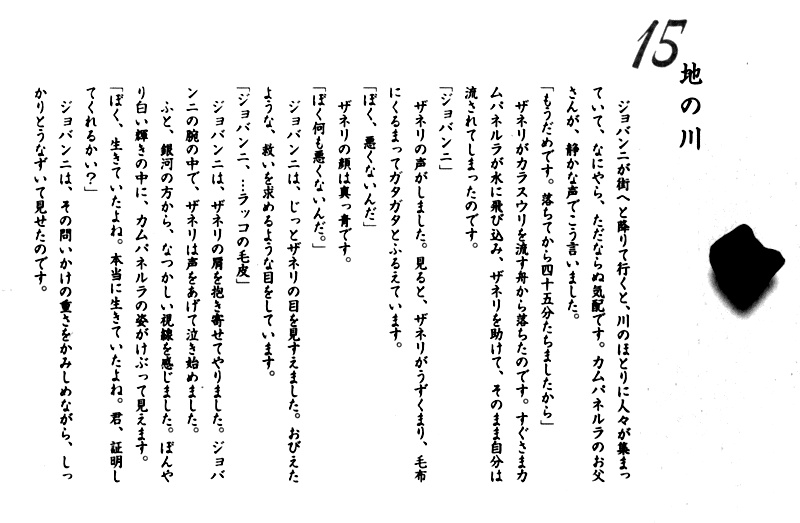 15
地の川
ジョバンニが街へと降りて行くと、川のほとりに人々が集まっ
ていて、なにやら、ただならぬ気配です。カムパネルラのお父
さんが、静かな声でこう言いました。
「もうだめです。落ちてから四十五分たちましたから」
ザネリがカラスウリを流す舟から落ちたのです。すぐさまカ
ムパネルラが水に飛び込み、ザネリを助けて、そのまま自分は
流されてしまったのです。
「ジョバンニ」
ザネリの声がしました。見ると、ザネリがうずくまり、毛布
にくるまってガタガタとふるえています。
「ぼく、悪くないんだ」
ザネリの顔は真っ青です。
「ぼく何も悪くないんだ。」
ジョバンニは、じっとザネリの目を見すえました。おびえた
ような、救いを求めるような目をしています。
「ジョバンニ、…ラッコの毛皮」
ジョバンニは、ザネリの肩を抱き寄せてやりました。ジョバ
ンニの腕の中で、ザネリは声をあげて泣き始めました。
ふと、銀河の方から、なつかしい視線を感じました。ぼんや
り白い輝きの中に、カムパネルラの姿がけぶって見えます。
「ぼく、生きていたよね。本当に生きていたよね。君、証明し
てくれるかい？」
ジョバンニは、その問いかけの重さをかみしめながら、しっ
かりとうなずいて見せたのです。